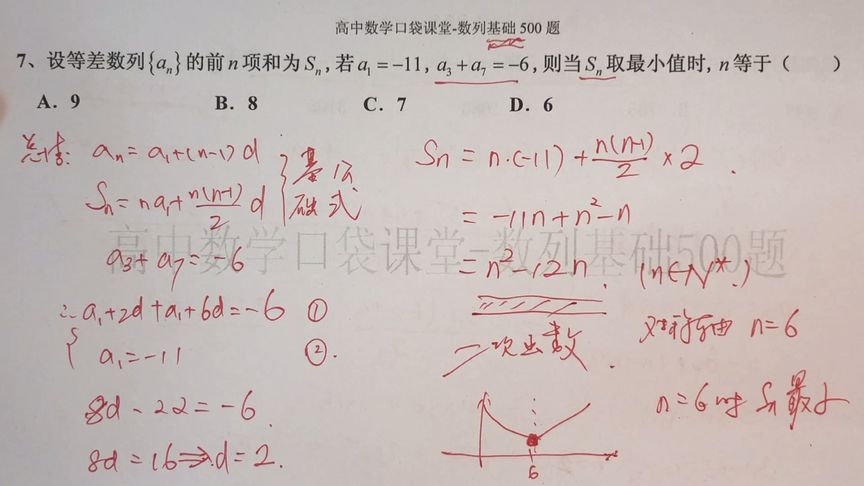 高中数学口袋课堂-数列基础 500 题
7、设等差数列{aₙ}的前n项和为Sₙ,若a₁=-11, a₃+a₇=-6,则当Sₙ取最小值时, n等于（ ）
A. 9 B. 8 C. 7 D. 6
总结: aₙ=a₁+(n-1)d
Sₙ=na₁+n(n-1)/2 d
基础公式
a₃+a₇=-6
∴a₁+2d+a₁+6d=-6 ①
a₁=-11 ②.
8d-22=-6
8d=16⇒d=2.
Sₙ=n·(-11)+n(n-1)/2×2.
=-11n+n²-n
=n²-12n. (n∈N*.)
二次函数.
对称轴 n=6
n=6时 Sₙ最小
6
高中数学口袋课堂-数列基础500题